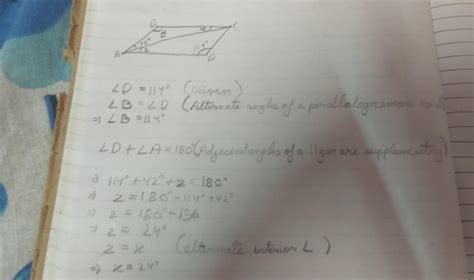 D C
y x
A
114°
∠D = 114° (Given)
∠B = ∠D (Alternate angles of a parallelogram are
⇒ ∠B = 114°
∠D + ∠A = 180° (Adjecent angles of a ||gm are supplementry)
⇒ 114° + 42° + z = 180°
⇒ z = 180° - 114° + 42°
⇒ z = 180° - 156
⇒ z = 24°
z = x (alternate interior ∠)
⇒ x = 24°